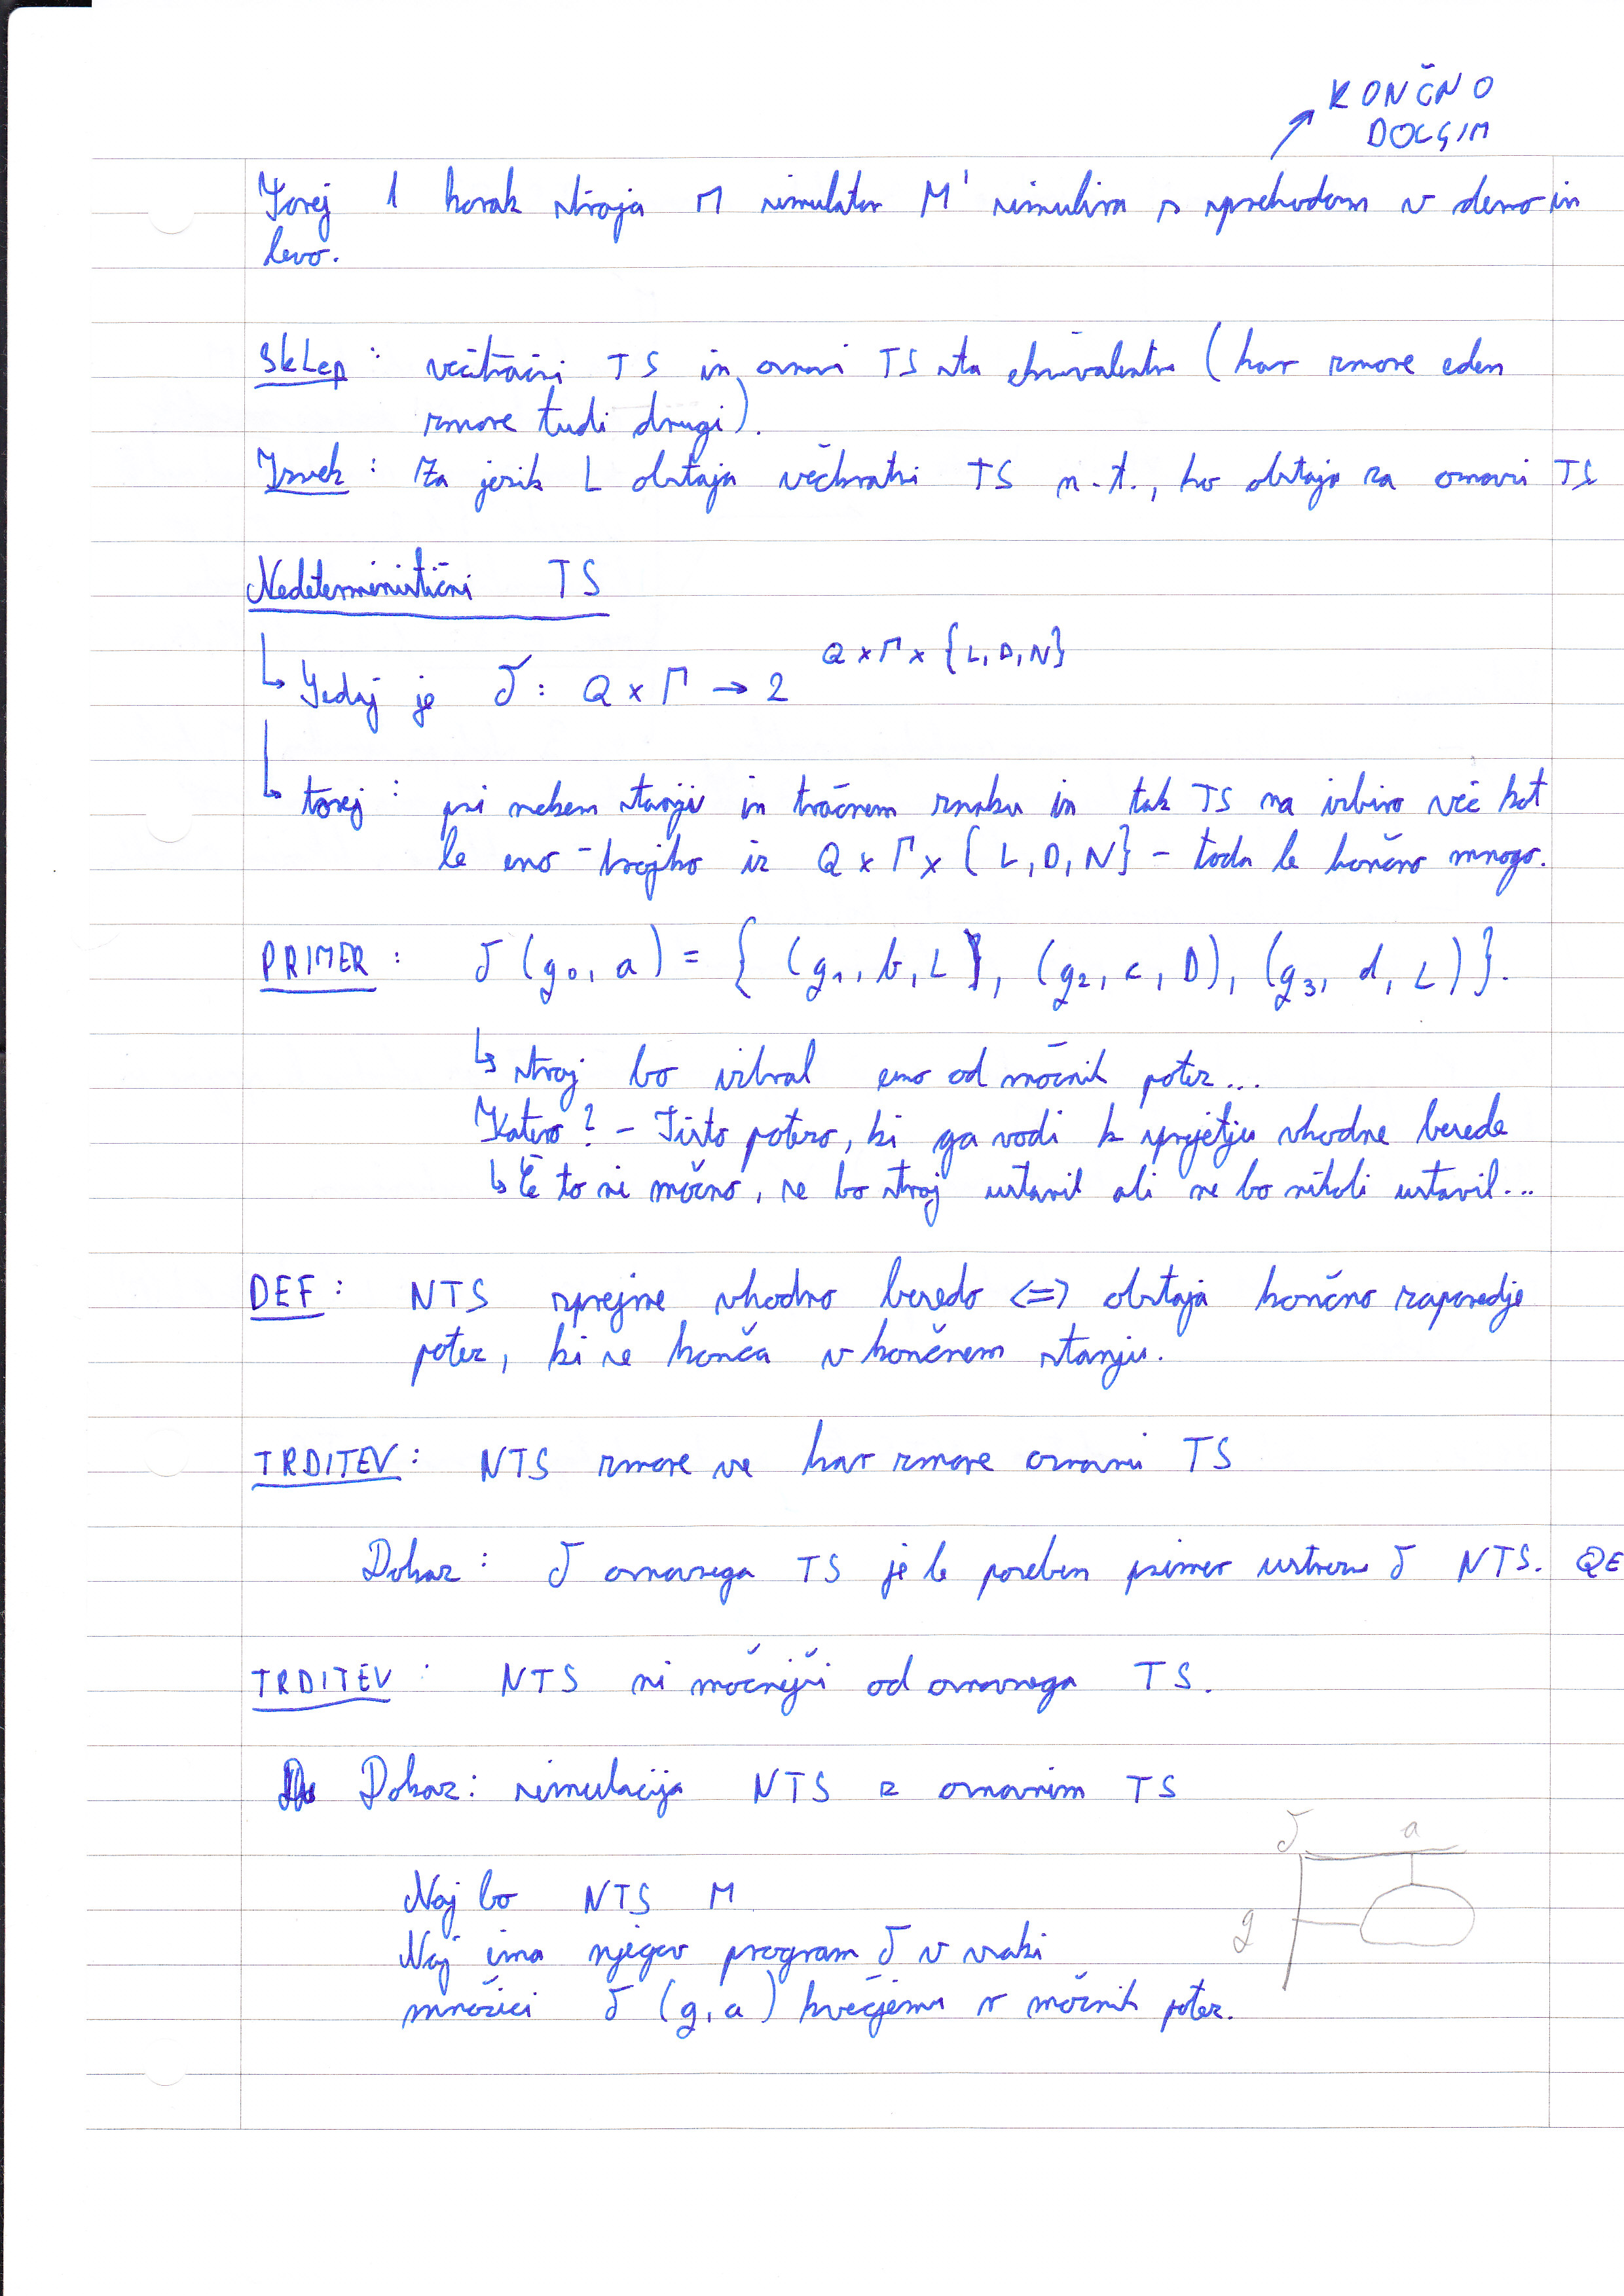 KONČNO
DOLGIM
Torej 1 korak stroja M simulator M' simulira s sprehodom v desno in
levo.
Sklep : večtračni TS in osnovni TS sta ekvivalentna (kar zmore eden
zmore tudi drugi).
Izrek : Za jezik L obstaja večtračni TS n.t., ko obstaja za osnovni TS
Nedeterministični TS
↳ Sedaj je δ : Q × Γ → 2^{Q × Γ × {L, D, N}}
↳ torej : pri nekem stanju in tračnem znaku in tak TS na izbiro več kot
le eno - trojko iz Q × Γ × {L, D, N} - toda le končno mnogo.
PRIMER : δ (q₀, a) = { (q₁, b, L), (q₂, c, D), (q₃, d, L) }.
↳ stroj bo izbral eno od možnih potez...
Katero? - Tisto potezo, ki ga vodi k sprejetju vhodne besede
↳ Če to ni možno, se bo stroj ustavil ali se bo nikoli ustavil...
DEF : NTS sprejme vhodno besedo <=> obstaja končno zaporedje
potez, ki se konča v končnem stanju.
TRDITEV : NTS zmore vse kar zmore osnovni TS
Dokaz : δ osnovnega TS je le poseben primer ustrezne δ NTS. QE
TRDITEV : NTS ni močnejši od osnovnega TS.
Dokaz : simulacija NTS z osnovnim TS
δ a
Naj bo NTS M
q
Naj ima njegov program δ v vsaki
množici δ (q, a) kvečjemu r možnih potez.